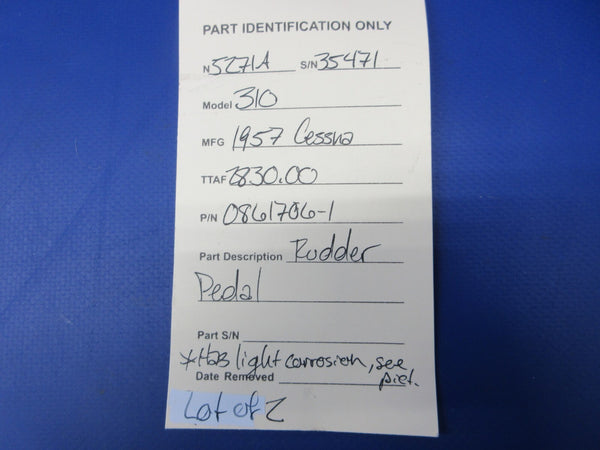 PART IDENTIFICATION ONLY
N 5271A S/N 35471
Model 310
MFG 1957 Cessna
TTAF 2830.00
P/N 0861706-1
Part Description Rudder
Pedal
Part S/N
*Has light corrosion, see
Date Removed pict.
Lot of 2